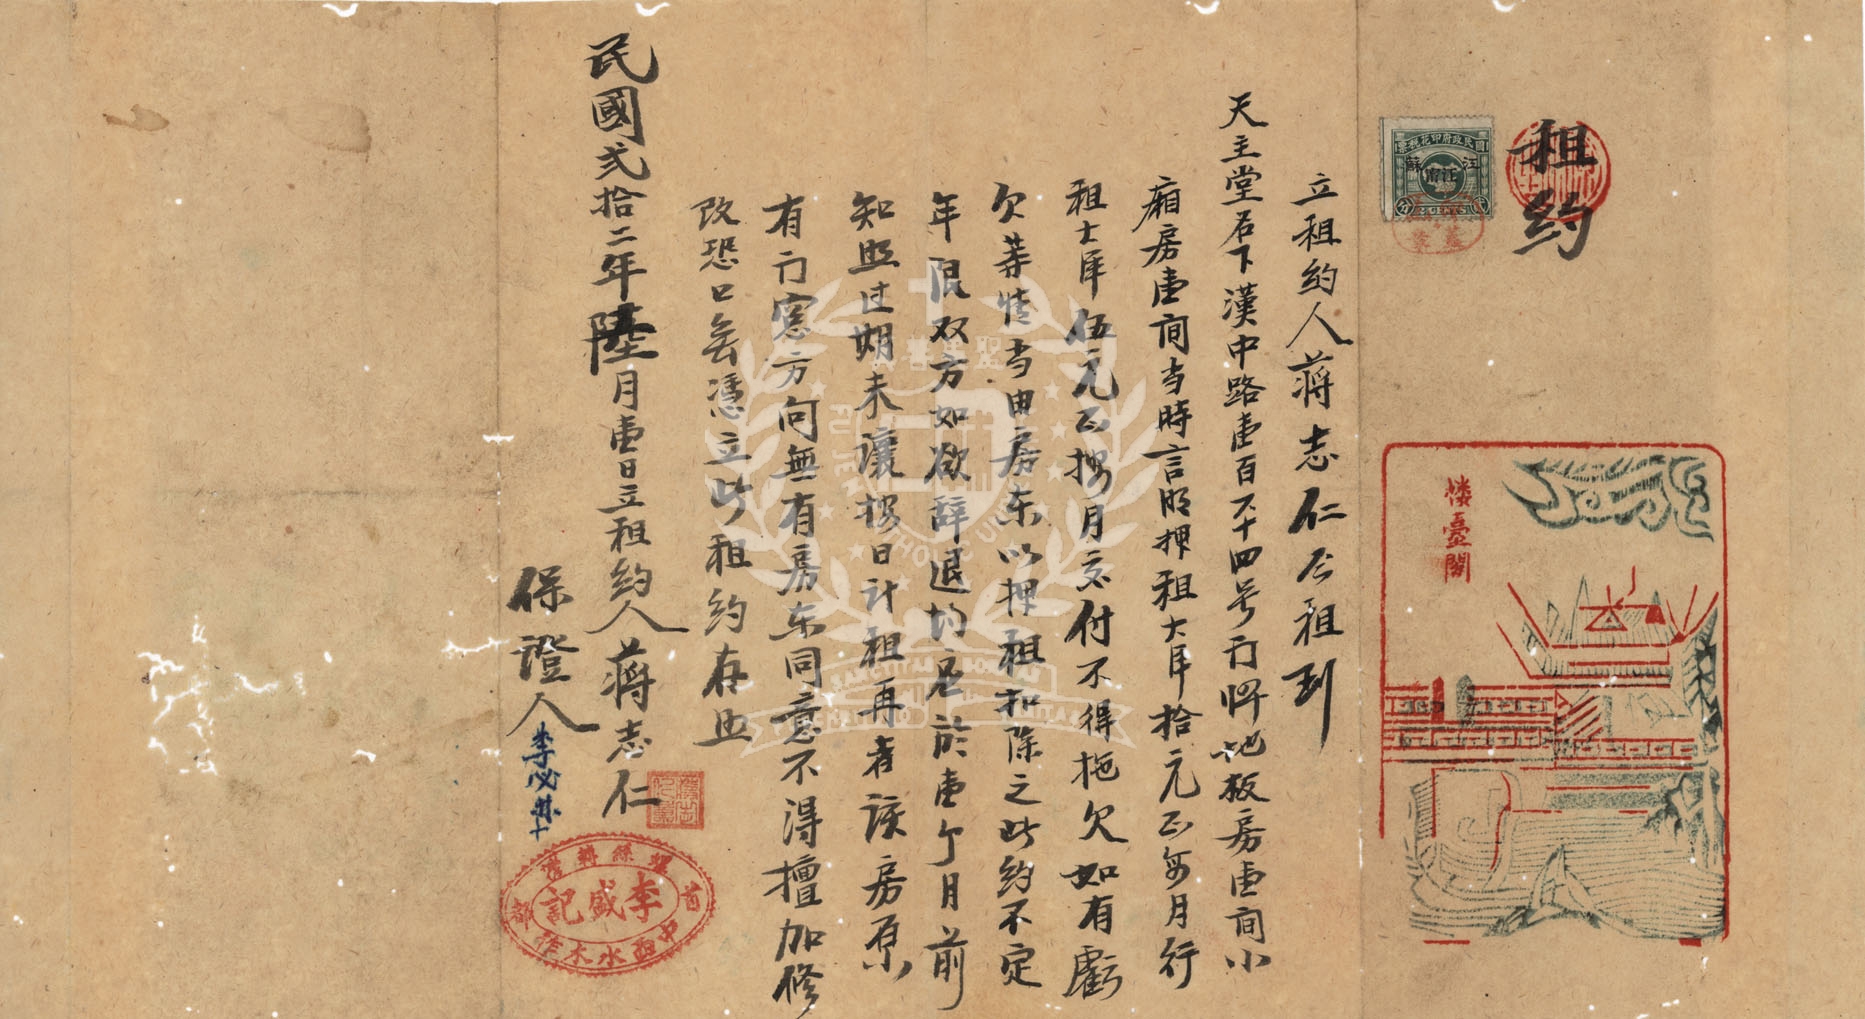 租约
國民政府印花稅票
江蘇
江甯
樓臺閣
立租约人蒋志仁今租到
天主堂名下漢中路壹百六十四号门牌地板房壹间小
廂房壹间当時言明押租大洋拾元正每月行
租大洋伍元正按月交付不得拖欠如有虧
欠等情当由房东以押租扣除之此约不定
年限双方如欲辞退均应於壹个月前
知照过期未讓按日计租再者该房原
有门窓方向無有房东同意不得擅加修
改恐口無憑立此租约存照
民國弍拾二年陸月壹日立租约人蒋志仁
保證人
李盛記
首都
中西水木作